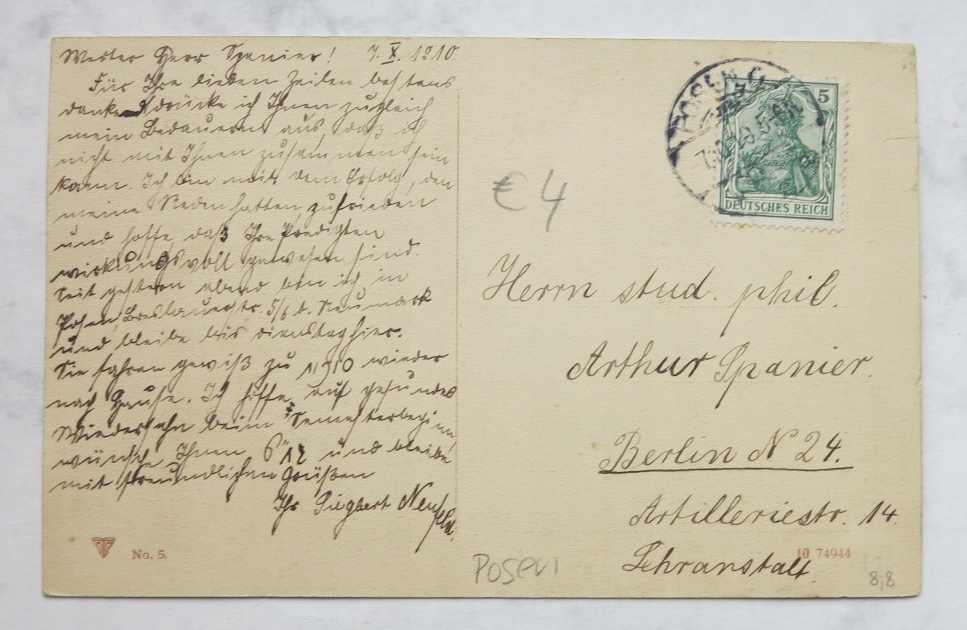 Werter Herr Spanier! 7. X. 1910.
Für Ihre lieben Zeilen bestens
dankend drücke ich Ihnen zugleich
mein Bedauern aus, daß ich
nicht mit Ihnen zusammen sein
kann. Ich bin mit dem Erfolg, den
meine Reden hatten, zufrieden
und hoffe, daß Ihre Predigten
wirkungsvoll gewesen sind.
Seit gestern abend bin ich in
Posen, Breslauerstr. 5/6 b. Neumark
und bleibe bis dienstag hier.
Sie fahren gewiß zu wieder
nach Hause. Ich hoffe auf gesundes
Wiedersehn beim Semesterbeginn,
wünsche Ihnen und bleibe
mit freundlichen Grüßen
Ihr Siegbert
No. 5.
POSEN
5
DEUTSCHES REICH
€ 4
Herrn stud. phil.
Arthur Spanier.
Berlin N 24.
Artilleriestr. 14.
10 74944
Lehranstalt.
Posen
8,8